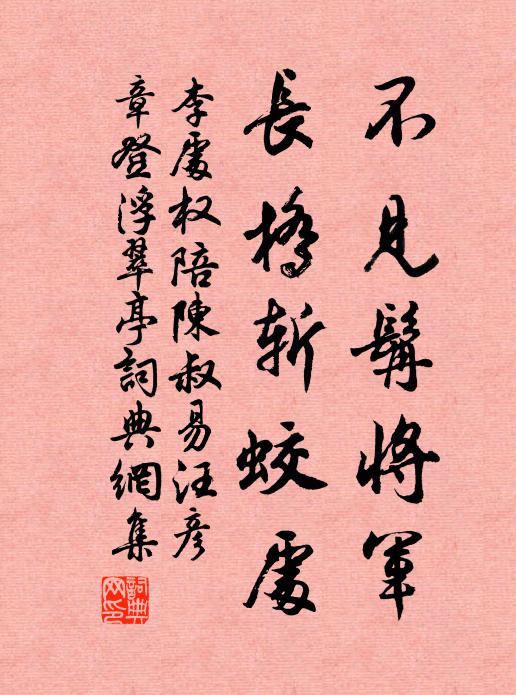 不見髯將軍
長橋斬蛟處
李處权陪陳叔易汪彦
章登浮翠亭詞典網集
詞典网印